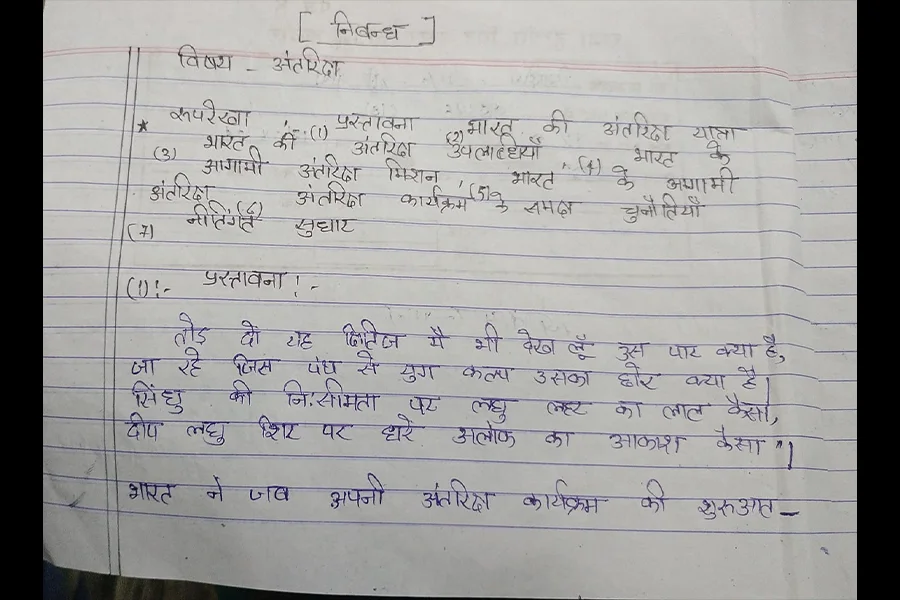 [ निबन्ध ]
विषय - अंतरिक्ष
* रूपरेखा :- (1) प्रस्तावना (2) भारत की अंतरिक्ष यात्रा
(3) भारत की अंतरिक्ष उपलब्धियाँ (4) भारत के
आगामी अंतरिक्ष मिशन, (5) भारत के अगामी
अंतरिक्ष (6) अंतरिक्ष कार्यक्रम के समक्ष चुनौतियाँ
(7) नीतिगत सुधार
(1):- प्रस्तावना :-
तोड़ दो यह क्षितिज मै भी देख लूँ उस पार क्या है,
जा रहे जिस पंथ से युग कल्प उसका छोर क्या है।
सिंधु की नि:सीमता पर लघु लहर का लाल कैसा,
दीप लघु शिर पर धरे अलोक का आकाश कैसा"।
भारत ने जब अपनी अंतरिक्ष कार्यक्रम की शुरुआत -